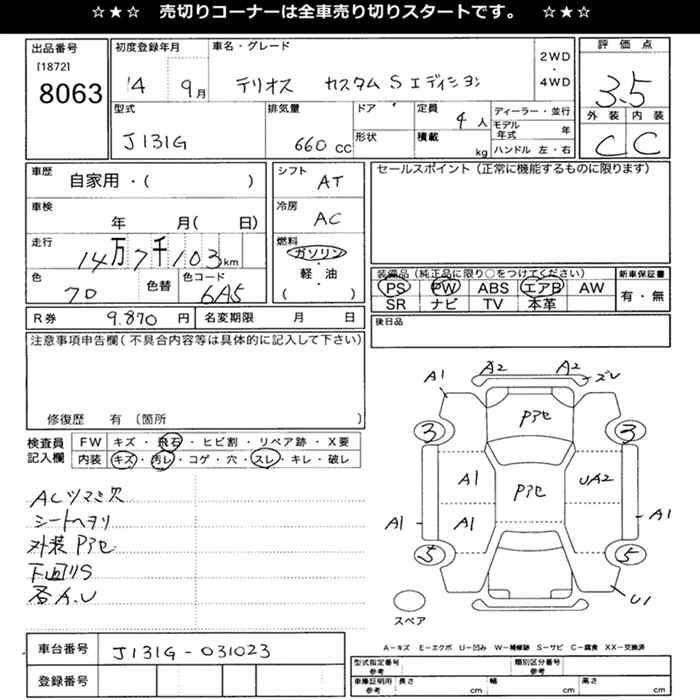 ☆★☆ 売切りコーナーは全車売り切りスタートです。 ☆★☆
出品番号
[1872]
8063
初度登録年月
14 9月
車名・グレード
テリオス カスタムSエディション
2WD
・
4WD
評価点
3.5
外装 内装
C C
型式
J131G
排気量
660 cc
ドア
形状
定員
4人
積載
kg
ディーラー・並行
モデル年式 年
ハンドル 左・右
車歴
自家用・( )
シフト
AT
セールスポイント(正常に機能するものに限ります)
車検
年 月( 日)
冷房
AC
走行
14万7千103km
燃料
ガソリン
・
軽・油
( )
色
70
色替
色コード
6A5
装備品(純正品に限り○をつけてください)
PS PW ABS エアB AW
SR ナビ TV 本革
新車保証書
有・無
R券 9.870円
名変期限 月 日
後日品
注意事項申告欄(不具合内容等は具体的に記入して下さい)
修復歴 有 〔箇所 〕
検査員記入欄
FW キズ・飛石・ヒビ割・リペア跡・X要
内装 キズ・汚レ・コゲ・穴・スレ・キレ・破レ
ACツマミ欠
シートヘタリ
外装Pアセ
下回りS
A1 A2 A2 ズレ
Pアセ
3 3
A1 Pアセ UA2
A1 A1 A1
5 5
U1
スペア
車台番号 J131G-031023
登録番号
A-キズ E-エクボ U-凹み W-補修跡 S-サビ C-腐食 XX-交換済
型式指定番号 参考
類別区分番号 参考
車庫証明用 参考
長さ cm
幅 cm
高さ cm